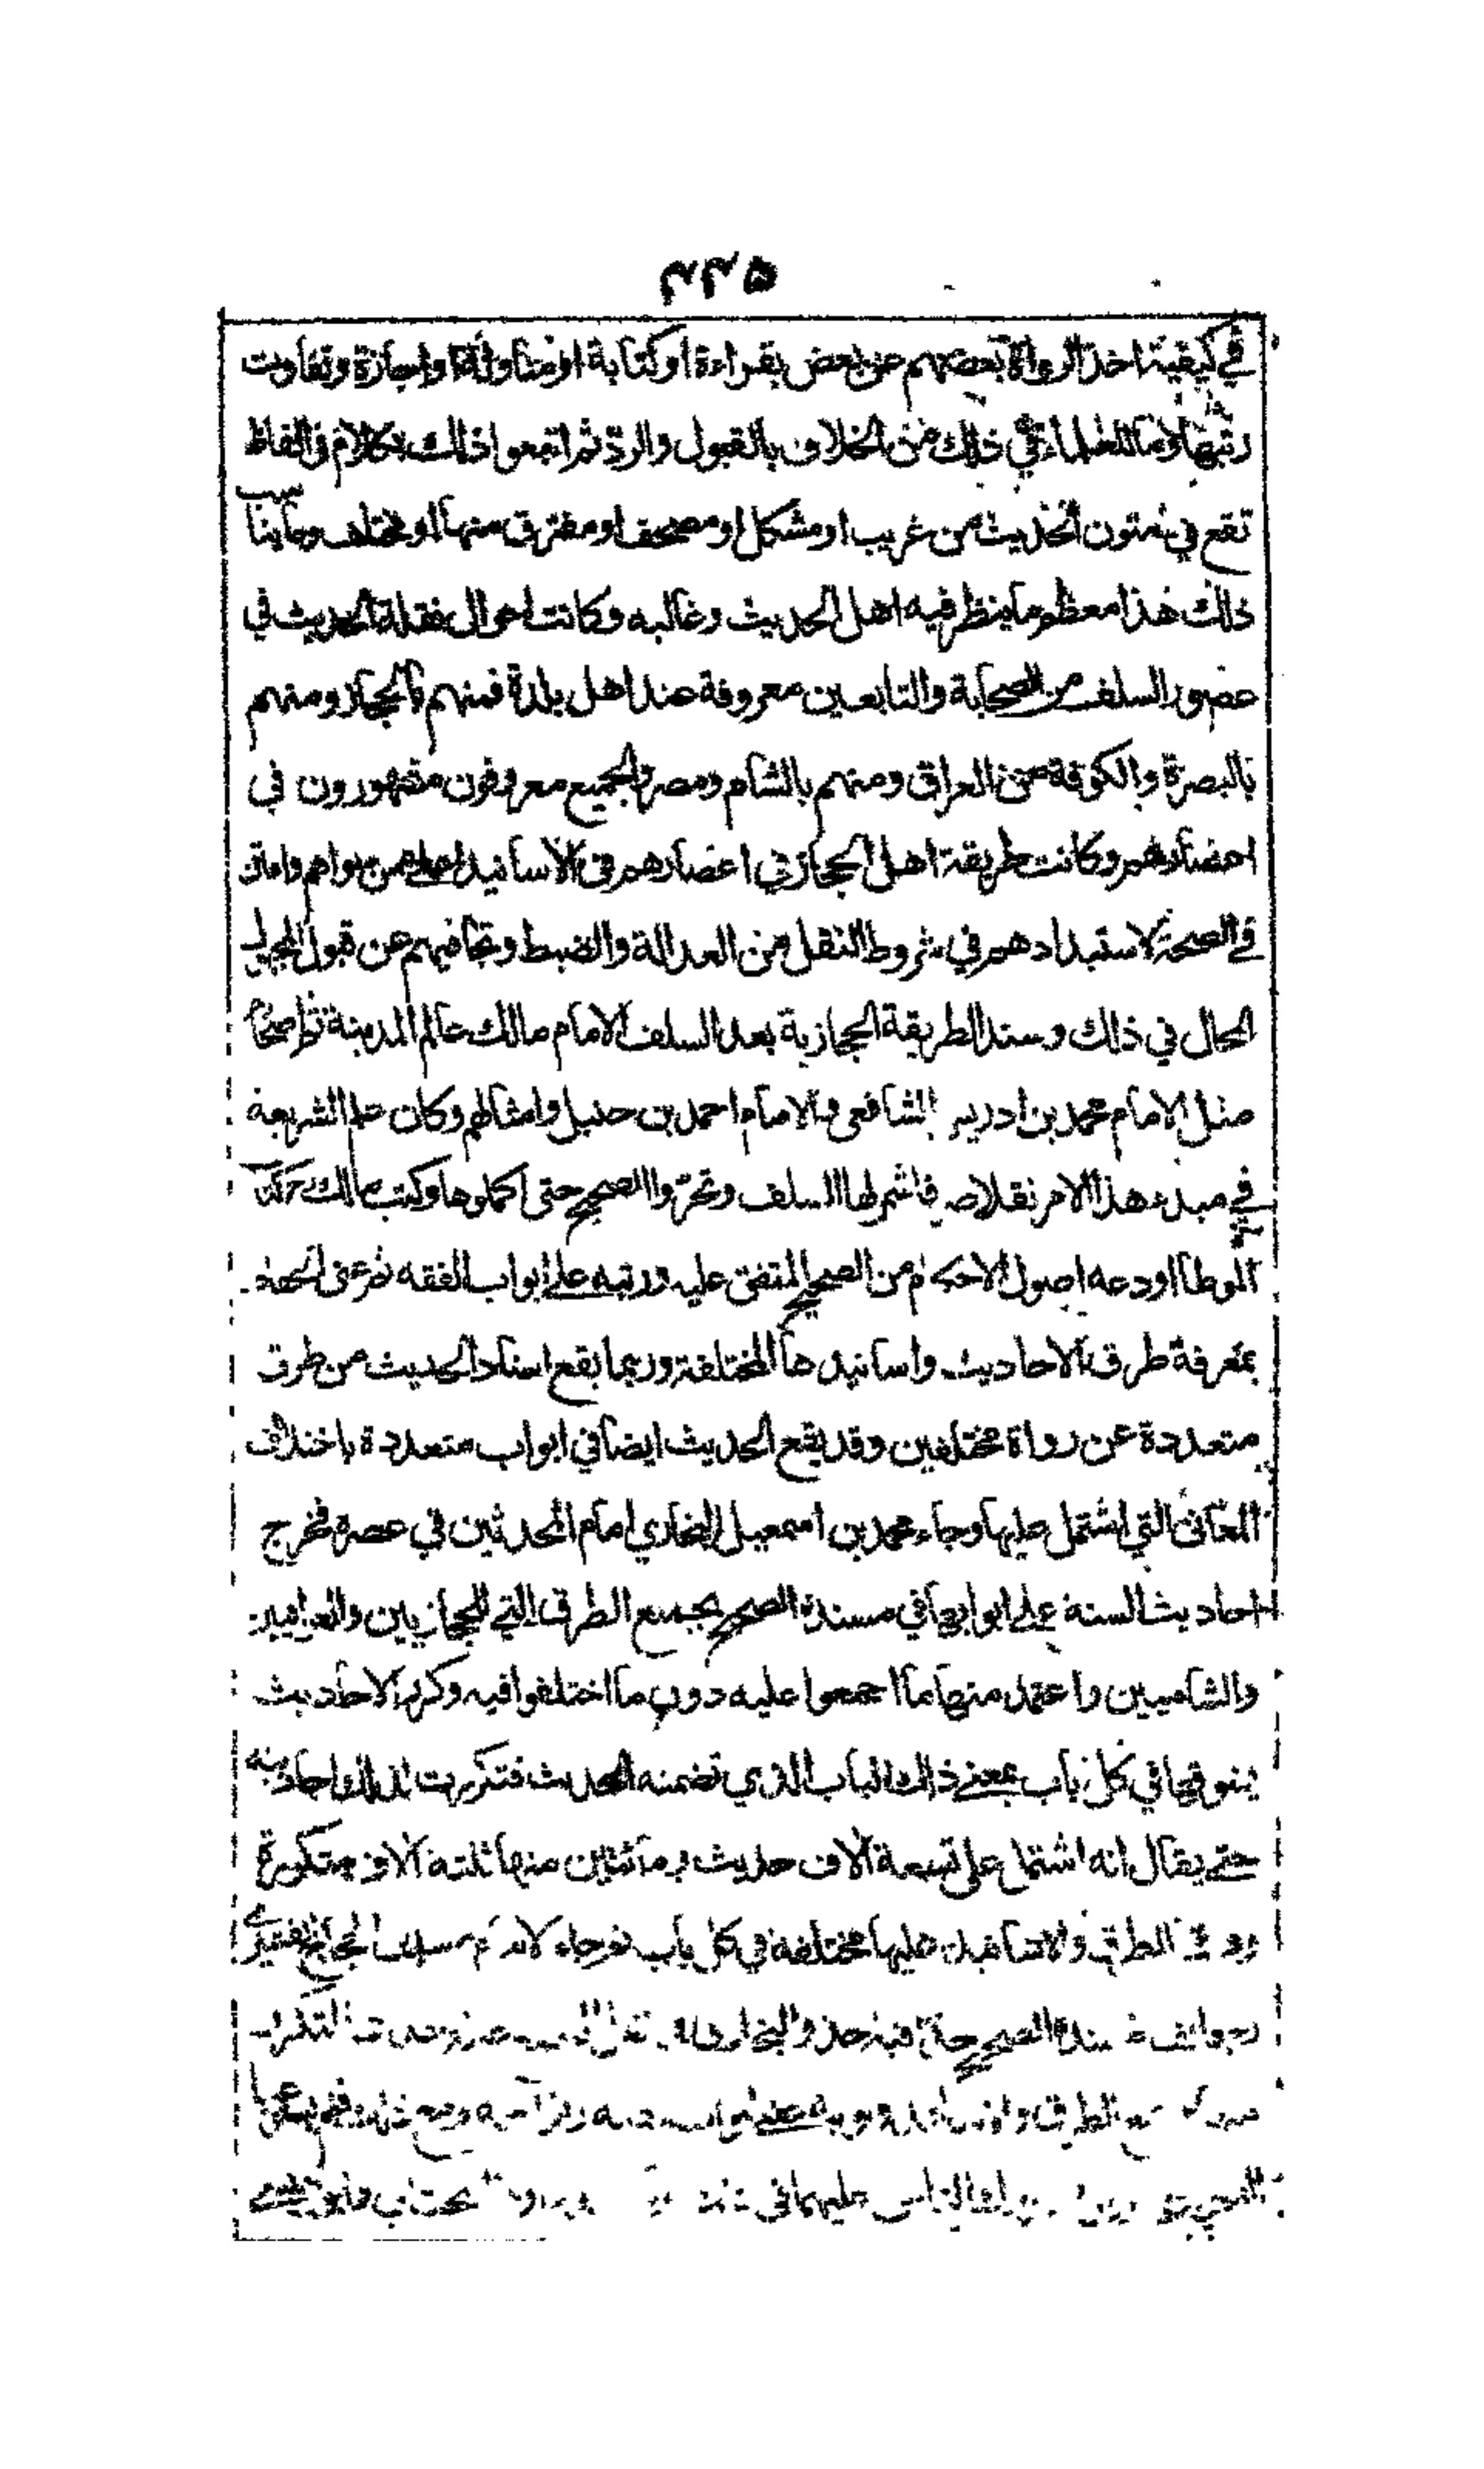 ۴۴۵
في كيفية اخذ الرواة بعضهم عن بعض بقراءة او كتابة او مناولة او اجازة وتفاوت
رتبها وما للعلماء في ذلك من الخلاف بالقبول والرد ثم اتبعوا ذلك بكلام في الفاظ
تقع في متون الحديث من غريب او مشكل او مصحف او مفترق منها او مختلف وما يناسب
ذلك هذا معظم ما ينظر فيه اهل الحديث وغالبه وكانت احوال نقلة الحديث في
عصور السلف من الصحابة والتابعين معروفة عند اهل بلدة فمنهم بالحجاز ومنهم
بالبصرة والكوفة من العراق ومنهم بالشام ومصر والجميع معروفون مشهورون في
اعصارهم وكانت طريقة اهل الحجاز في اعصارهم في الاسانيد اعلى ممن سواهم وامتن
في الصحة لاستبدادهم في شروط النقل من العدالة والضبط وتجافيهم عن قبول المجهول
الحال في ذلك وسند الطريقة الحجازية بعد السلف الامام مالك عالم المدينة ثم اصحابه
مثل الامام محمد بن ادريس الشافعي والامام احمد بن حنبل وامثالهم وكان علم الشريعة
في مبدء هذا الامر نقلا صرفا شمر لها السلف وتحروا الصحيح حتى اكملوها وكتب مالك رح كتاب
الموطا اودعه اصول الاحكام من الصحيح المتفق عليه ورتبه على ابواب الفقه ثم عنى الحفاظ
بمعرفة طرق الاحاديث واسانيدها المختلفة وربما يقع اسناد الحديث من طرق
متعددة عن رواة مختلفين وقد يقع الحديث ايضا في ابواب متعددة باختلاف
المعانى التي اشتمل عليها وجاء محمد بن اسمعيل البخاري امام المحدثين في عصره فخرج
احاديث السنة على ابوابها في مسنده الصحيح بجميع الطرق التي للحجازيين والعراقيين
والشاميين واعتمد منها ما اجمعوا عليه دون ما اختلفوا فيه وكرر الاحاديث
يسوقها في كل باب بمعنى ذلك الباب الذي تضمنه الحديث فتكررت لذلك احاديثه
حتى يقال انه اشتمل على تسعة آلاف حديث ومائتين منها ثلثة آلاف متكررة
الطرق والاسانيد عليها مختلفة في كل باب ثم جاء الامام مسلم الحجاج القشيري
مسنده الصحيح حذا فيه حذو البخاري
الطرق
الناس عليهما في